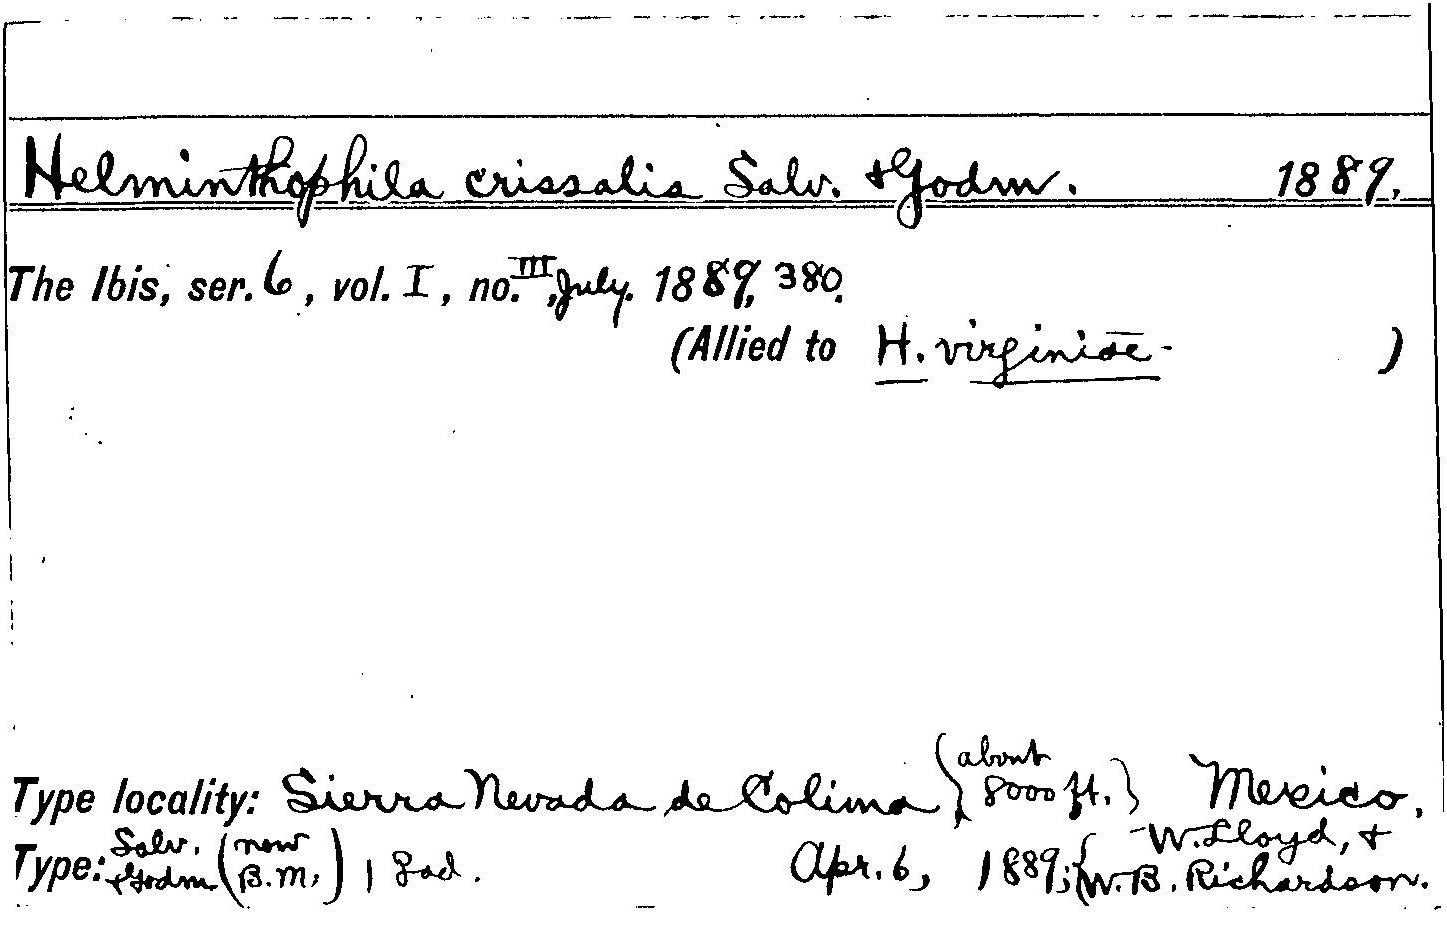 Helminthophila crissalis Salv. & Godm. 1889.
The Ibis, ser. 6, vol. I, no. III, July. 1889, 380.
(Allied to H. virginiae)
Type locality: Sierra Nevada de Colima {about 8000 ft.} Mexico.
Type: Salv. & Godm (now B.M.) 1 ad. Apr. 6, 1889; {W. Lloyd, & W. B. Richardson.